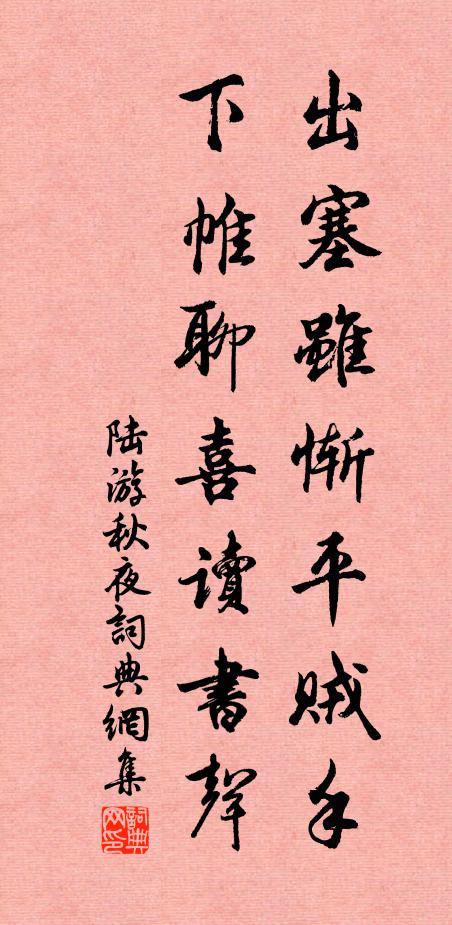 出塞雖慚平賊手
下帷聊喜讀書聲
陸游秋夜詞典網集
詞典
网印